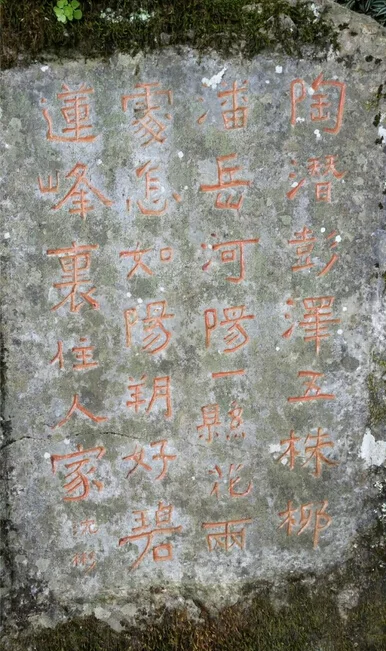 陶潛彭澤五株柳
潘岳河陽一縣花兩
處怎如陽朔好碧
蓮峰裏住人家
沈彬